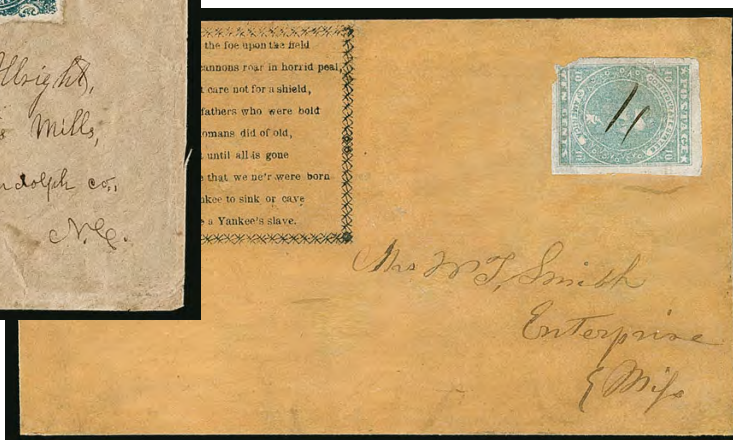 Allright,
Mills,
ndolph co,
N.C.
the foe upon the field
cannons roar in horrid peal,
t care not for a shield,
fathers who were bold
omans did of old,
until all is gone
e that we ne'r were born
nkee to sink or cave
e a Yankee's slave.
POSTAGE
Mrs W T, Smith
Enterprise
Miss